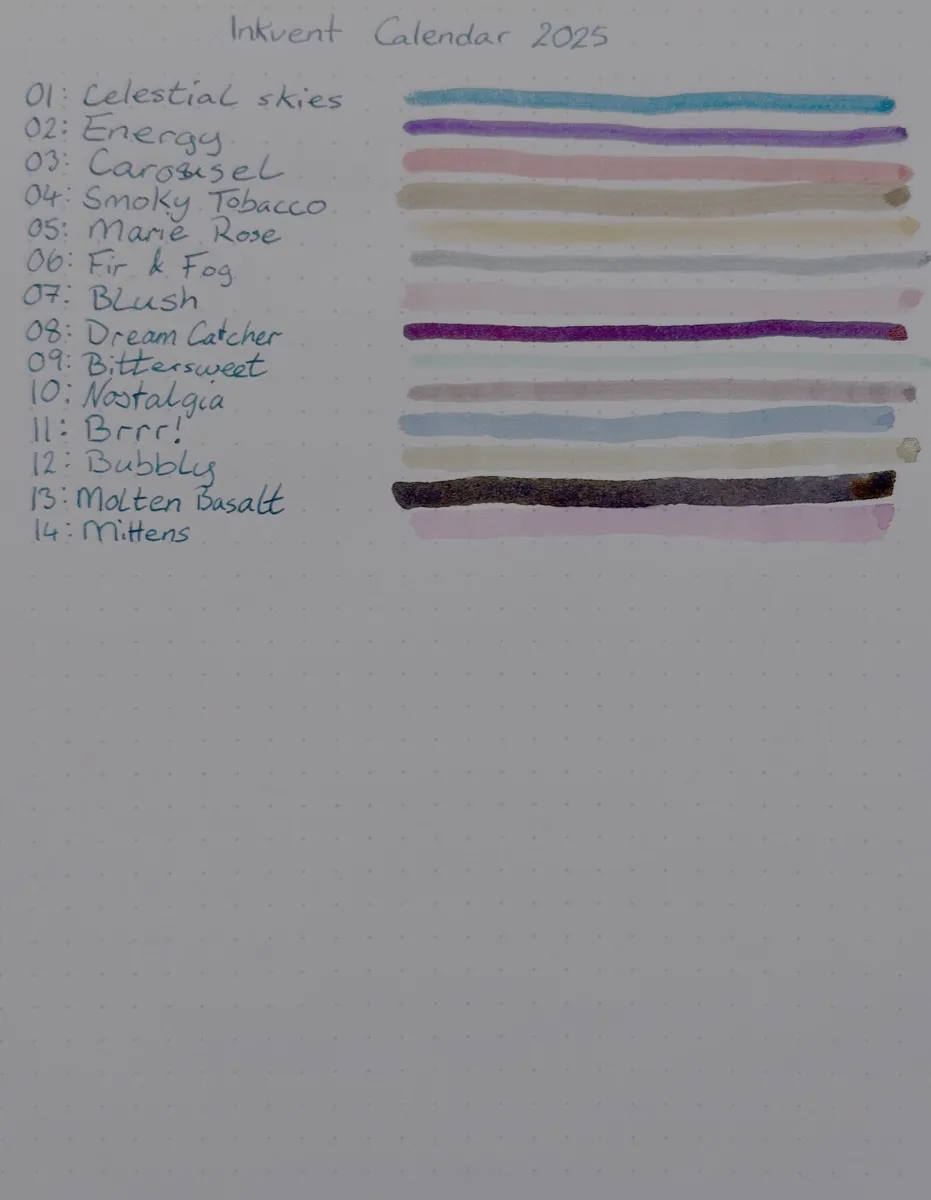 Inkvent Calendar 2025
01: Celestial skies
02: Energy
03: Carousel
04: Smoky Tobacco
05: Marie Rose
06: Fir & Fog
07: Blush
08: Dream Catcher
09: Bittersweet
10: Nostalgia
11: Brrr!
12: Bubbly
13: Molten Basalt
14: Mittens